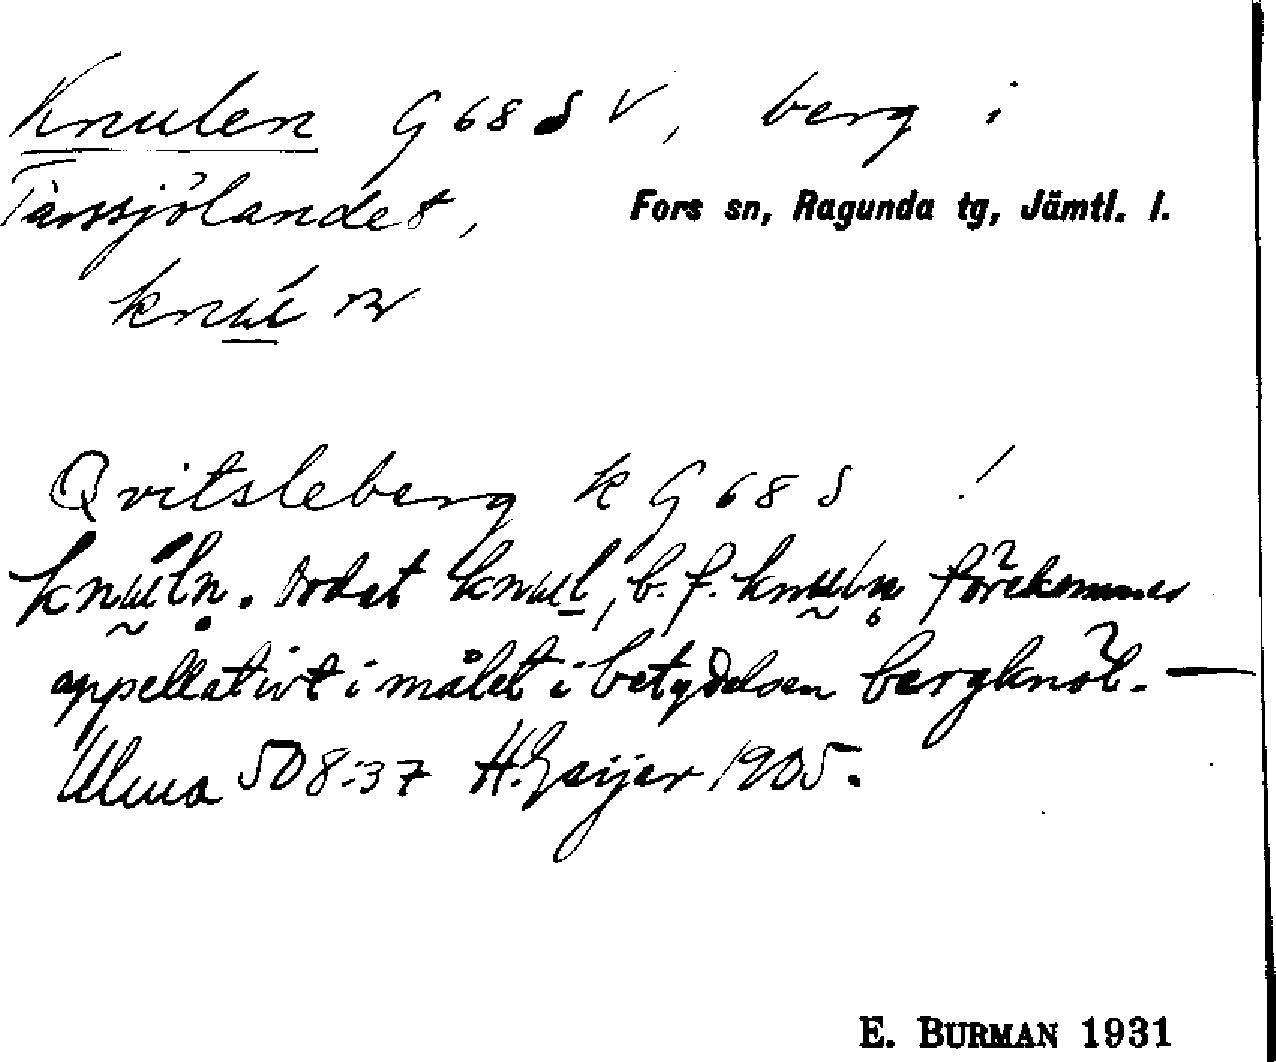 Knulen G 68 S V, berg i
Tärssjölandet,
Fors sn, Ragunda tg, Jämtl. l.
Qvitsleberg k G 68 S !
knuln. Ordet knul, b. f. knuln förekommer
appellativt i målet i betydelsen bergknöl. —
Ulma 508:37 H. Geijer 1905.
E. BURMAN 1931